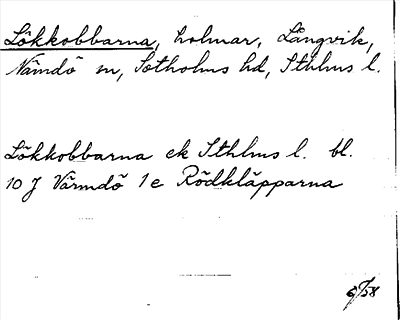 Lökkobbarna, holmar, Långvik,
Nämdö sn, Sotholms hd, Sthlms l.
Lökkobbarna ek Sthlms l. bl.
10 J Värmdö 1 e Rödkläpparna